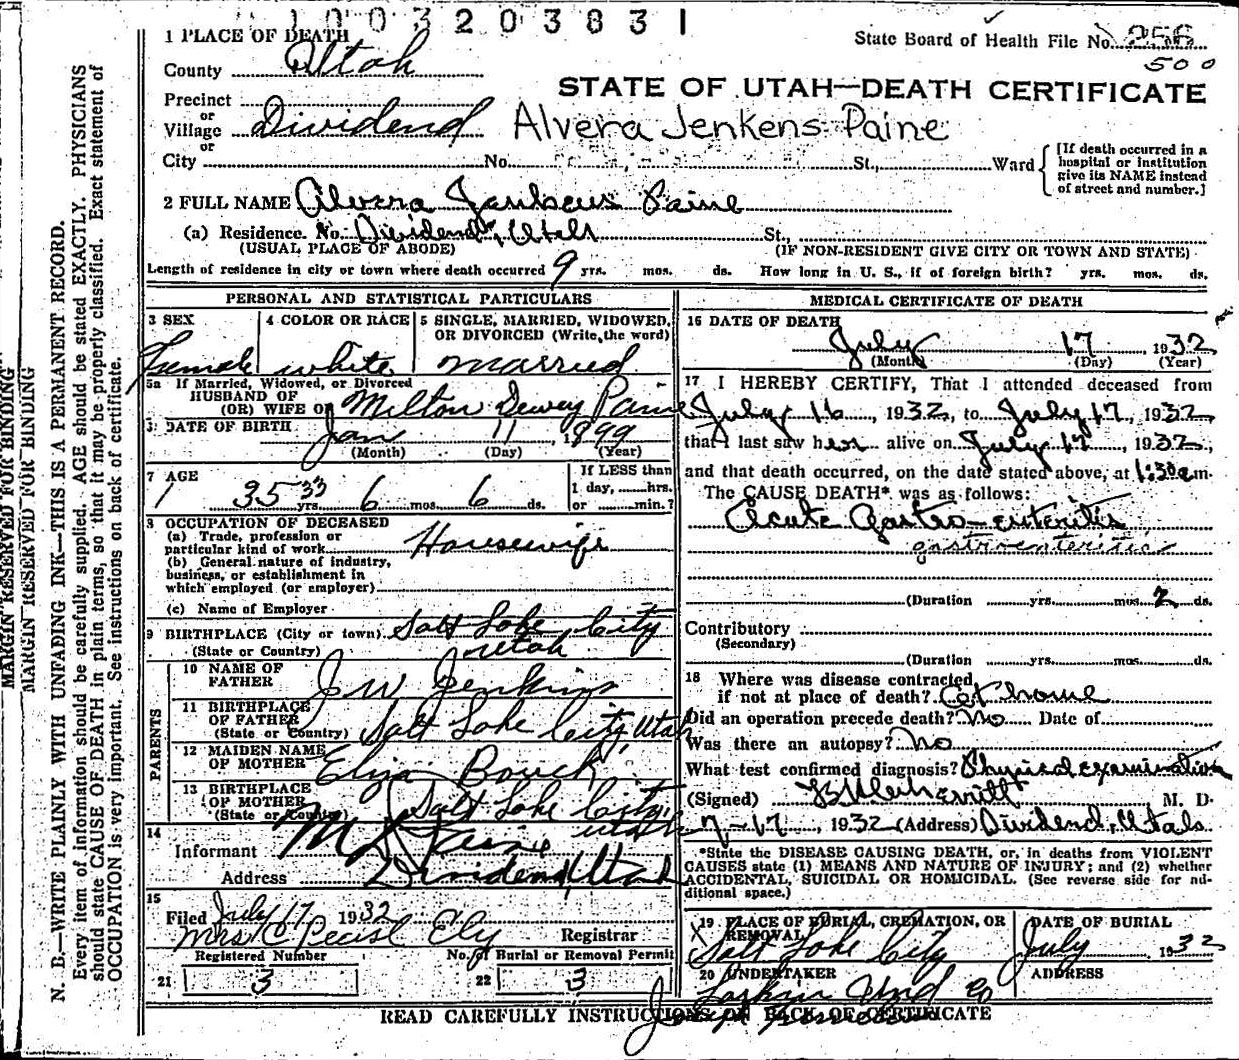 1003203831
1 PLACE OF DEATH
State Board of Health File No. 256
500
County Utah
STATE OF UTAH—DEATH CERTIFICATE
Precinct
or
Village Dividend
Alvera Jenkens Paine
or
City No. St., Ward
[If death occurred in a
hospital or institution
give its NAME instead
of street and number.]
2 FULL NAME Alvera Paine
(a) Residence. No. Dividend, Utah St.,
(USUAL PLACE OF ABODE) (IF NON-RESIDENT GIVE CITY OR TOWN AND STATE)
Length of residence in city or town where death occurred 9 yrs. mos. ds. How long in U. S., if of foreign birth? yrs. mos. ds.
PERSONAL AND STATISTICAL PARTICULARS
3 SEX
Female
4 COLOR OR RACE
white
5 SINGLE, MARRIED, WIDOWED,
OR DIVORCED (Write the word)
married
5a If Married, Widowed, or Divorced
HUSBAND OF
(OR) WIFE OF Milton Dewey Paine
6 DATE OF BIRTH Jan 11, 1899
(Month) (Day) (Year)
7 AGE
35 33 yrs. 6 mos. 6 ds.
If LESS than
1 day, hrs.
or min.?
8 OCCUPATION OF DECEASED
(a) Trade, profession or
particular kind of work Housewife
(b) General nature of industry,
business, or establishment in
which employed (or employer)
(c) Name of Employer
9 BIRTHPLACE (City or town) Salt Lake City
(State or Country) Utah
PARENTS
10 NAME OF
FATHER J W Jenkins
11 BIRTHPLACE
OF FATHER
(State or Country) Salt Lake City Utah
12 MAIDEN NAME
OF MOTHER Eliza Bouck
13 BIRTHPLACE
OF MOTHER
(State or Country) Salt Lake City,
Utah
14
Informant M D Paine
Address Dividend, Utah
15
Filed July 17 1932
Mrs C Ely Registrar
Registered Number No. of Burial or Removal Permit
21 3 22 3
MEDICAL CERTIFICATE OF DEATH
16 DATE OF DEATH
July 17, 1932
(Month) (Day) (Year)
17 I HEREBY CERTIFY, That I attended deceased from
July 16, 1932, to July 17, 1932,
that I last saw her alive on July 17, 1932,
and that death occurred, on the date stated above, at 1:30 a m.
The CAUSE DEATH* was as follows:
Acute Gastro-enteritis
gastroenteritis
(Duration yrs. mos. 2 ds.
Contributory
(Secondary)
(Duration yrs. mos. ds.
18 Where was disease contracted
if not at place of death? At home
Did an operation precede death? No Date of
Was there an autopsy? No
What test confirmed diagnosis? Physical examination
(Signed) M. D.
7-17, 1932 (Address) Dividend, Utah
*State the DISEASE CAUSING DEATH, or, in deaths from VIOLENT
CAUSES state (1) MEANS AND NATURE OF INJURY; and (2) whether
ACCIDENTAL, SUICIDAL OR HOMICIDAL. (See reverse side for ad-
ditional space.)
19 PLACE OF BURIAL, CREMATION, OR
REMOVAL
Salt Lake City
DATE OF BURIAL
July 1932
20 UNDERTAKER
Larkin Und Co
ADDRESS
READ CAREFULLY INSTRUCTIONS ON BACK OF CERTIFICATE
MARGIN RESERVED FOR BINDING
MARGIN RESERVED FOR BINDING
N. B.—WRITE PLAINLY WITH UNFADING INK—THIS IS A PERMANENT RECORD.
Every item of information should be carefully supplied. AGE should be stated EXACTLY. PHYSICIANS
should state CAUSE OF DEATH in plain terms, so that it may be properly classified. Exact statement of
OCCUPATION is very important. See instructions on back of certificate.